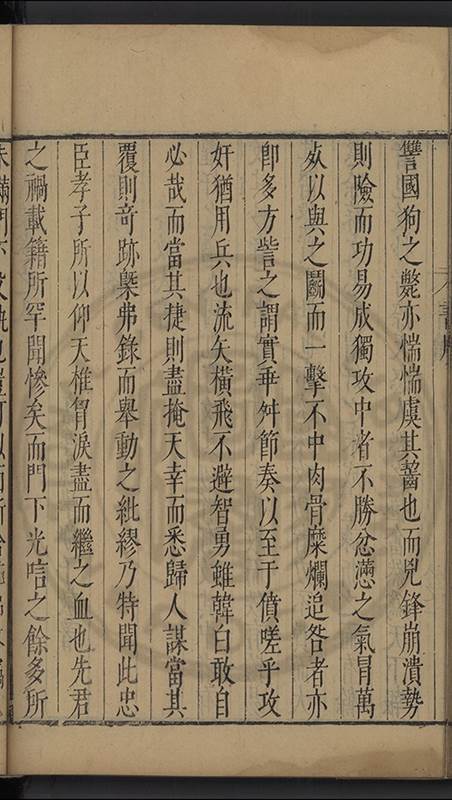 讐國狗之斃亦惴惴虞其齧也而兇鋒崩潰勢
則險而功易成獨攻中者不勝忿懣之氣冒萬
死以與之鬭而一擊不中肉骨糜爛追咎者亦
卽多方訾之謂實乖舛節奏以至于僨嗟乎攻
奸猶用兵也流矢橫飛不避智勇雖韓白敢自
必哉而當其捷則盡掩天幸而悉歸人謀當其
覆則竒跡槩弗錄而舉動之紕繆乃特聞此忠
臣孝子所以仰天椎胷淚盡而繼之血也先君
之禍載籍所罕聞慘矣而門下光唁之餘多所